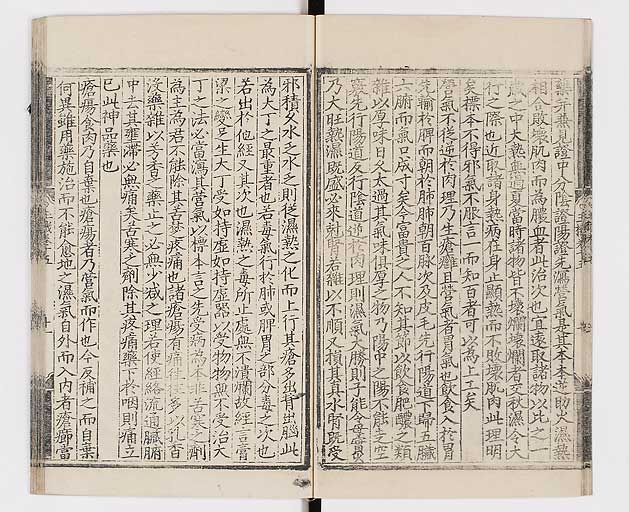 藥并兼見證中分陰證陽證先瀉營氣是其本本逆助火濕熱
相合敗壞肌肉而為膿血者此治次也宜遠取諸物以此之一
歲之中大熱無過夏當時諸物皆不壞爛壞爛者交秋濕令大
行之際也近取諸身熱病在身止顯熱而不敗壞肌肉此理明
矣標本不得邪氣不服言一而知百者可以為上工矣
營氣不從逆於肉理乃生瘡癰且營氣者胃氣也飲食入於胃
先輸於脾而朝於肺肺朝百脉次及皮毛先行陽道下歸五臟
六腑而氣口成寸矣今富貴之人不知其節以飲食肥醲之類
雜以厚味日久太過其氣味俱厚之物乃陽中之陽不能走空
竅先行陽道反行陰道逆於肉理則濕氣大勝則子能令母實
乃大旺熱濕既盛必來尅腎若雜以不順又損其真水腎既受
邪積久水乏水乏則從濕熱之化而上行其瘡多出背出腦此
為大丁之最重者也若毒氣行於肺或脾胃之部分毒之次也
若出於他經又其次也濕熱之毒所止處無不潰爛故經言膏
梁之變足生大丁受如持虛如持虛器以受物物無不受治大
丁之法必當瀉其營氣以標本言之先受病為本非苦寒之劑
為主為君不能除其苦楚疼痛也諸瘡瘍有痛往往多以乳香
沒藥雜以芳香之藥止之必無少減之理若使經絡流通臟腑
中去其壅滯必無痛矣苦寒之劑除其疼痛藥下於咽則痛立
已此神品藥也
瘡瘍食肉乃自棄也瘡瘍者乃營氣而作也今反補之而自棄
何異雖用藥施治而不能愈地之濕氣自外而入內者瘡癤當